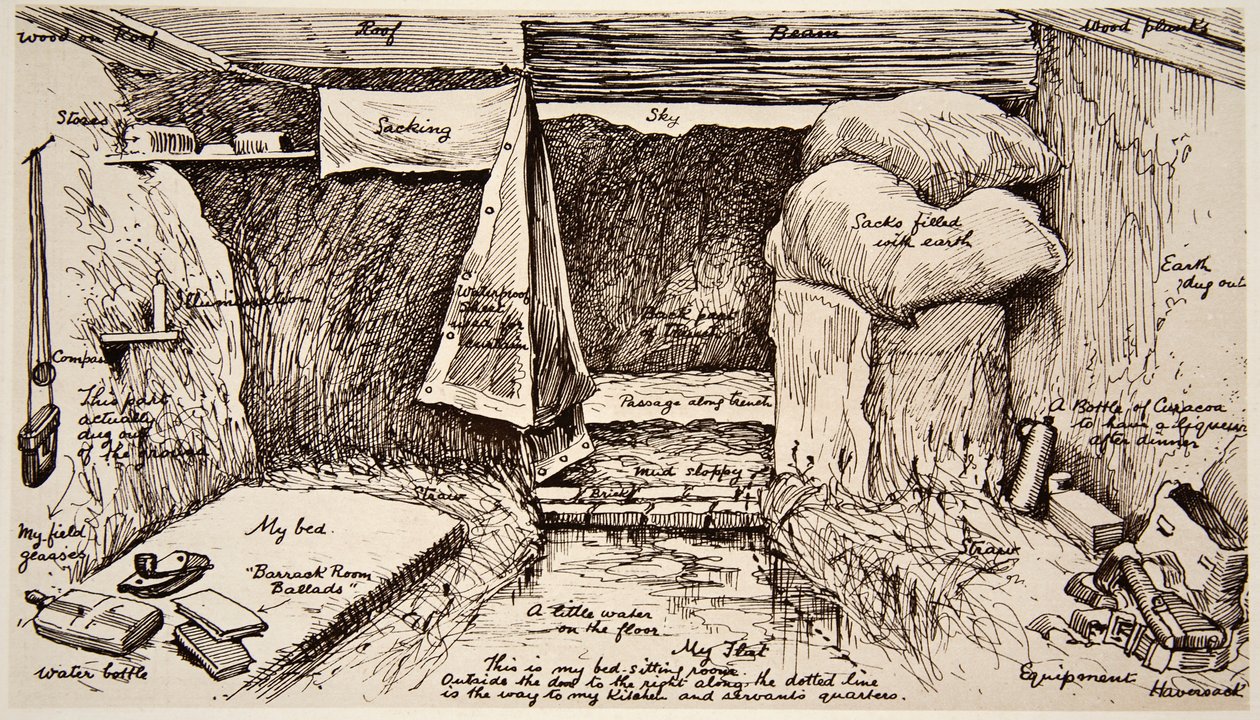 Wood on Roof
Roof
Beam
Wood planks
Stores
Sacking
Sky
Sacks filled
with earth
Earth
dug out
Illumination
Waterproof
sheet
used for
curtain
Back part
of Trench
Compass
This part
actually
dug out
of the ground
Passage along trench
A Bottle of Curacoa
to have a liqueur
after dinner
mud sloppy
Straw
Bricks
My field
glasses
My bed.
"Barrack Room
Ballads"
Straw
A little water
on the floor
My Flat
water bottle
This is my bed-sitting room.
Outside the door to the right along the dotted line
is the way to my Kitchen and servants quarters.
Equipment
Haversack